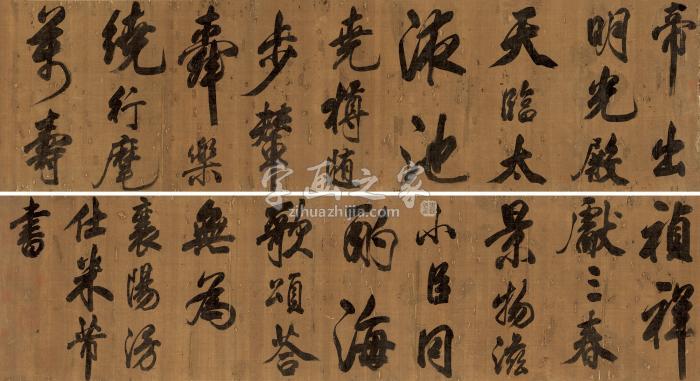 帝出
明光殿
天臨太
液池
堯樽随
步輦
舜樂
繞行麾
萬壽
禎祥
獻三春
景物滋
小臣同
酌海
歌頌荅
無為
襄陽漫
仕米芾
書
字画之家
zihuazhijia.com